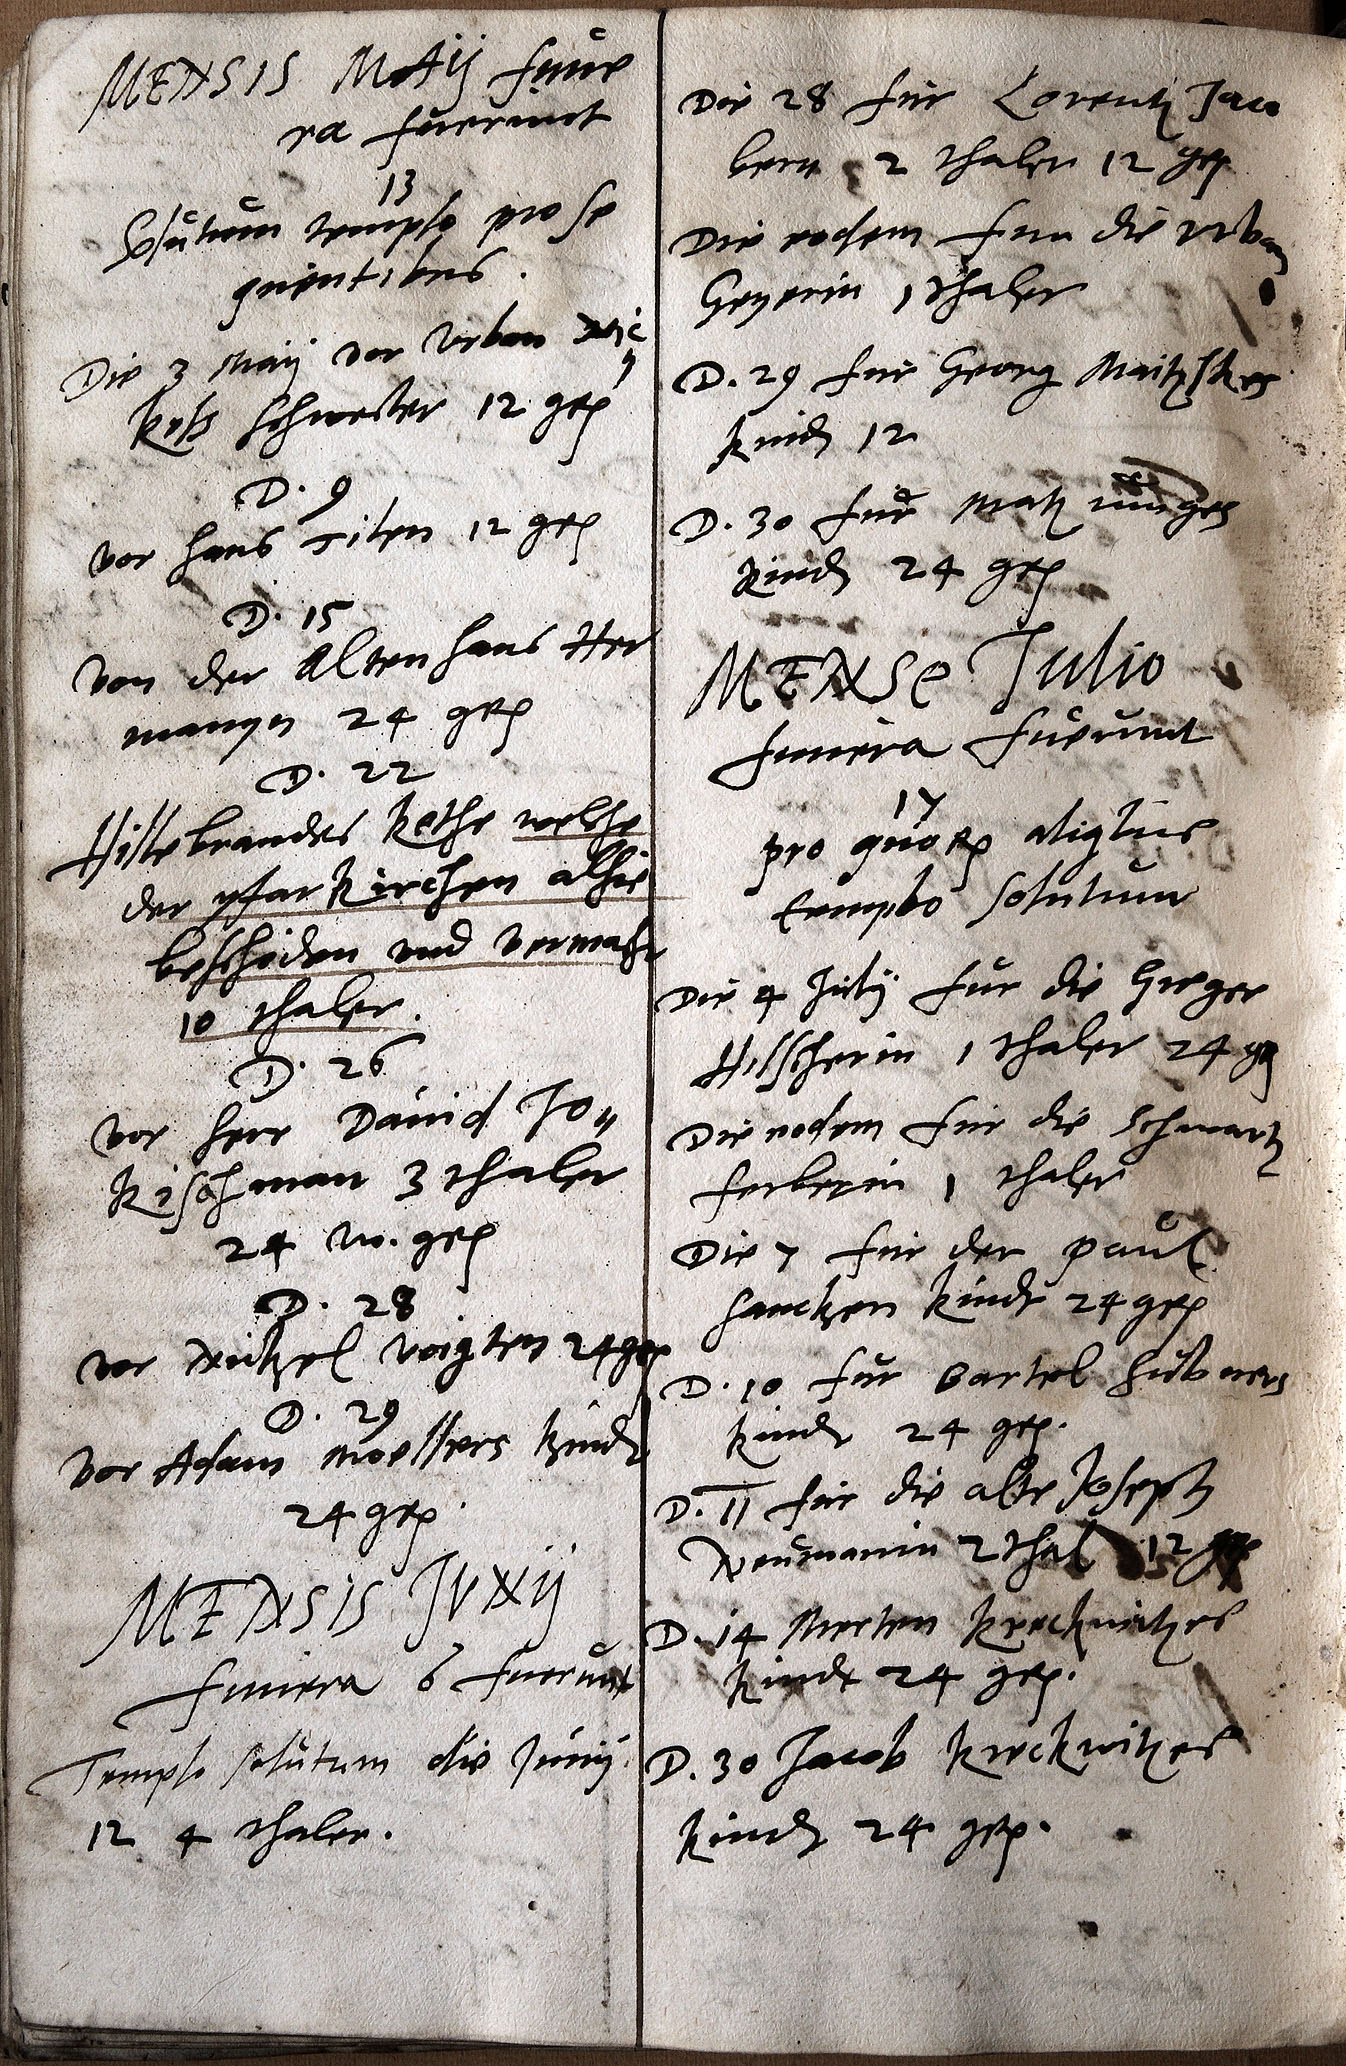 MENSIS MAIJ fune
ra fuerunt
13
Solutum templo pro se
quentibus.
Die 3 Maij vor Urban
schwester 12 grß
D. 9
vor hans Tilen 12 grß
D. 15
Von der Alten hans Her
manyn 24 grß
D. 22
Hillebrandes Kethe welche
der pfarkirchen alhie
bescheiden und vermacht
10 thaler.
D. 26
vor herr Dauid Jo„
kischman 3 thaler
24 w. grß
D. 28
vor Nickel voigten 24 grß
D. 29
Vor Adam Moellers kindt
24 grß.
MENSIS JVNIJ
funera 6 fuerunt
Templo solutum die Junij
12 4 thaler.
Die 28 für Lorentz Jaco
bern 2 thaler 12 grß
Die eodem für die Urban
Geyerin 1 thaler
D. 29 für Georg
kindt 12
D. 30 für Matz
kindt 24 grß
MENSE Julio
funera fuerunt
17
pro
templo solutum
Die 4 Julij für die Greger
Hilscherin 1 thaler 24 grß
Die eodem für die Schwartz
ferberin 1 thaler
Die 7 für der Paul
kindt 24 grß
D. 10 für Bartel hübners
kindt 24 grß.
D. 11 für die alte Joseph
Neumanin 2 thal 12 grß
D. 14 Merten Kreckwitzes
kindt 24 grß.
D. 30 Jacob Kreckwitzes
kindt 24 grß.